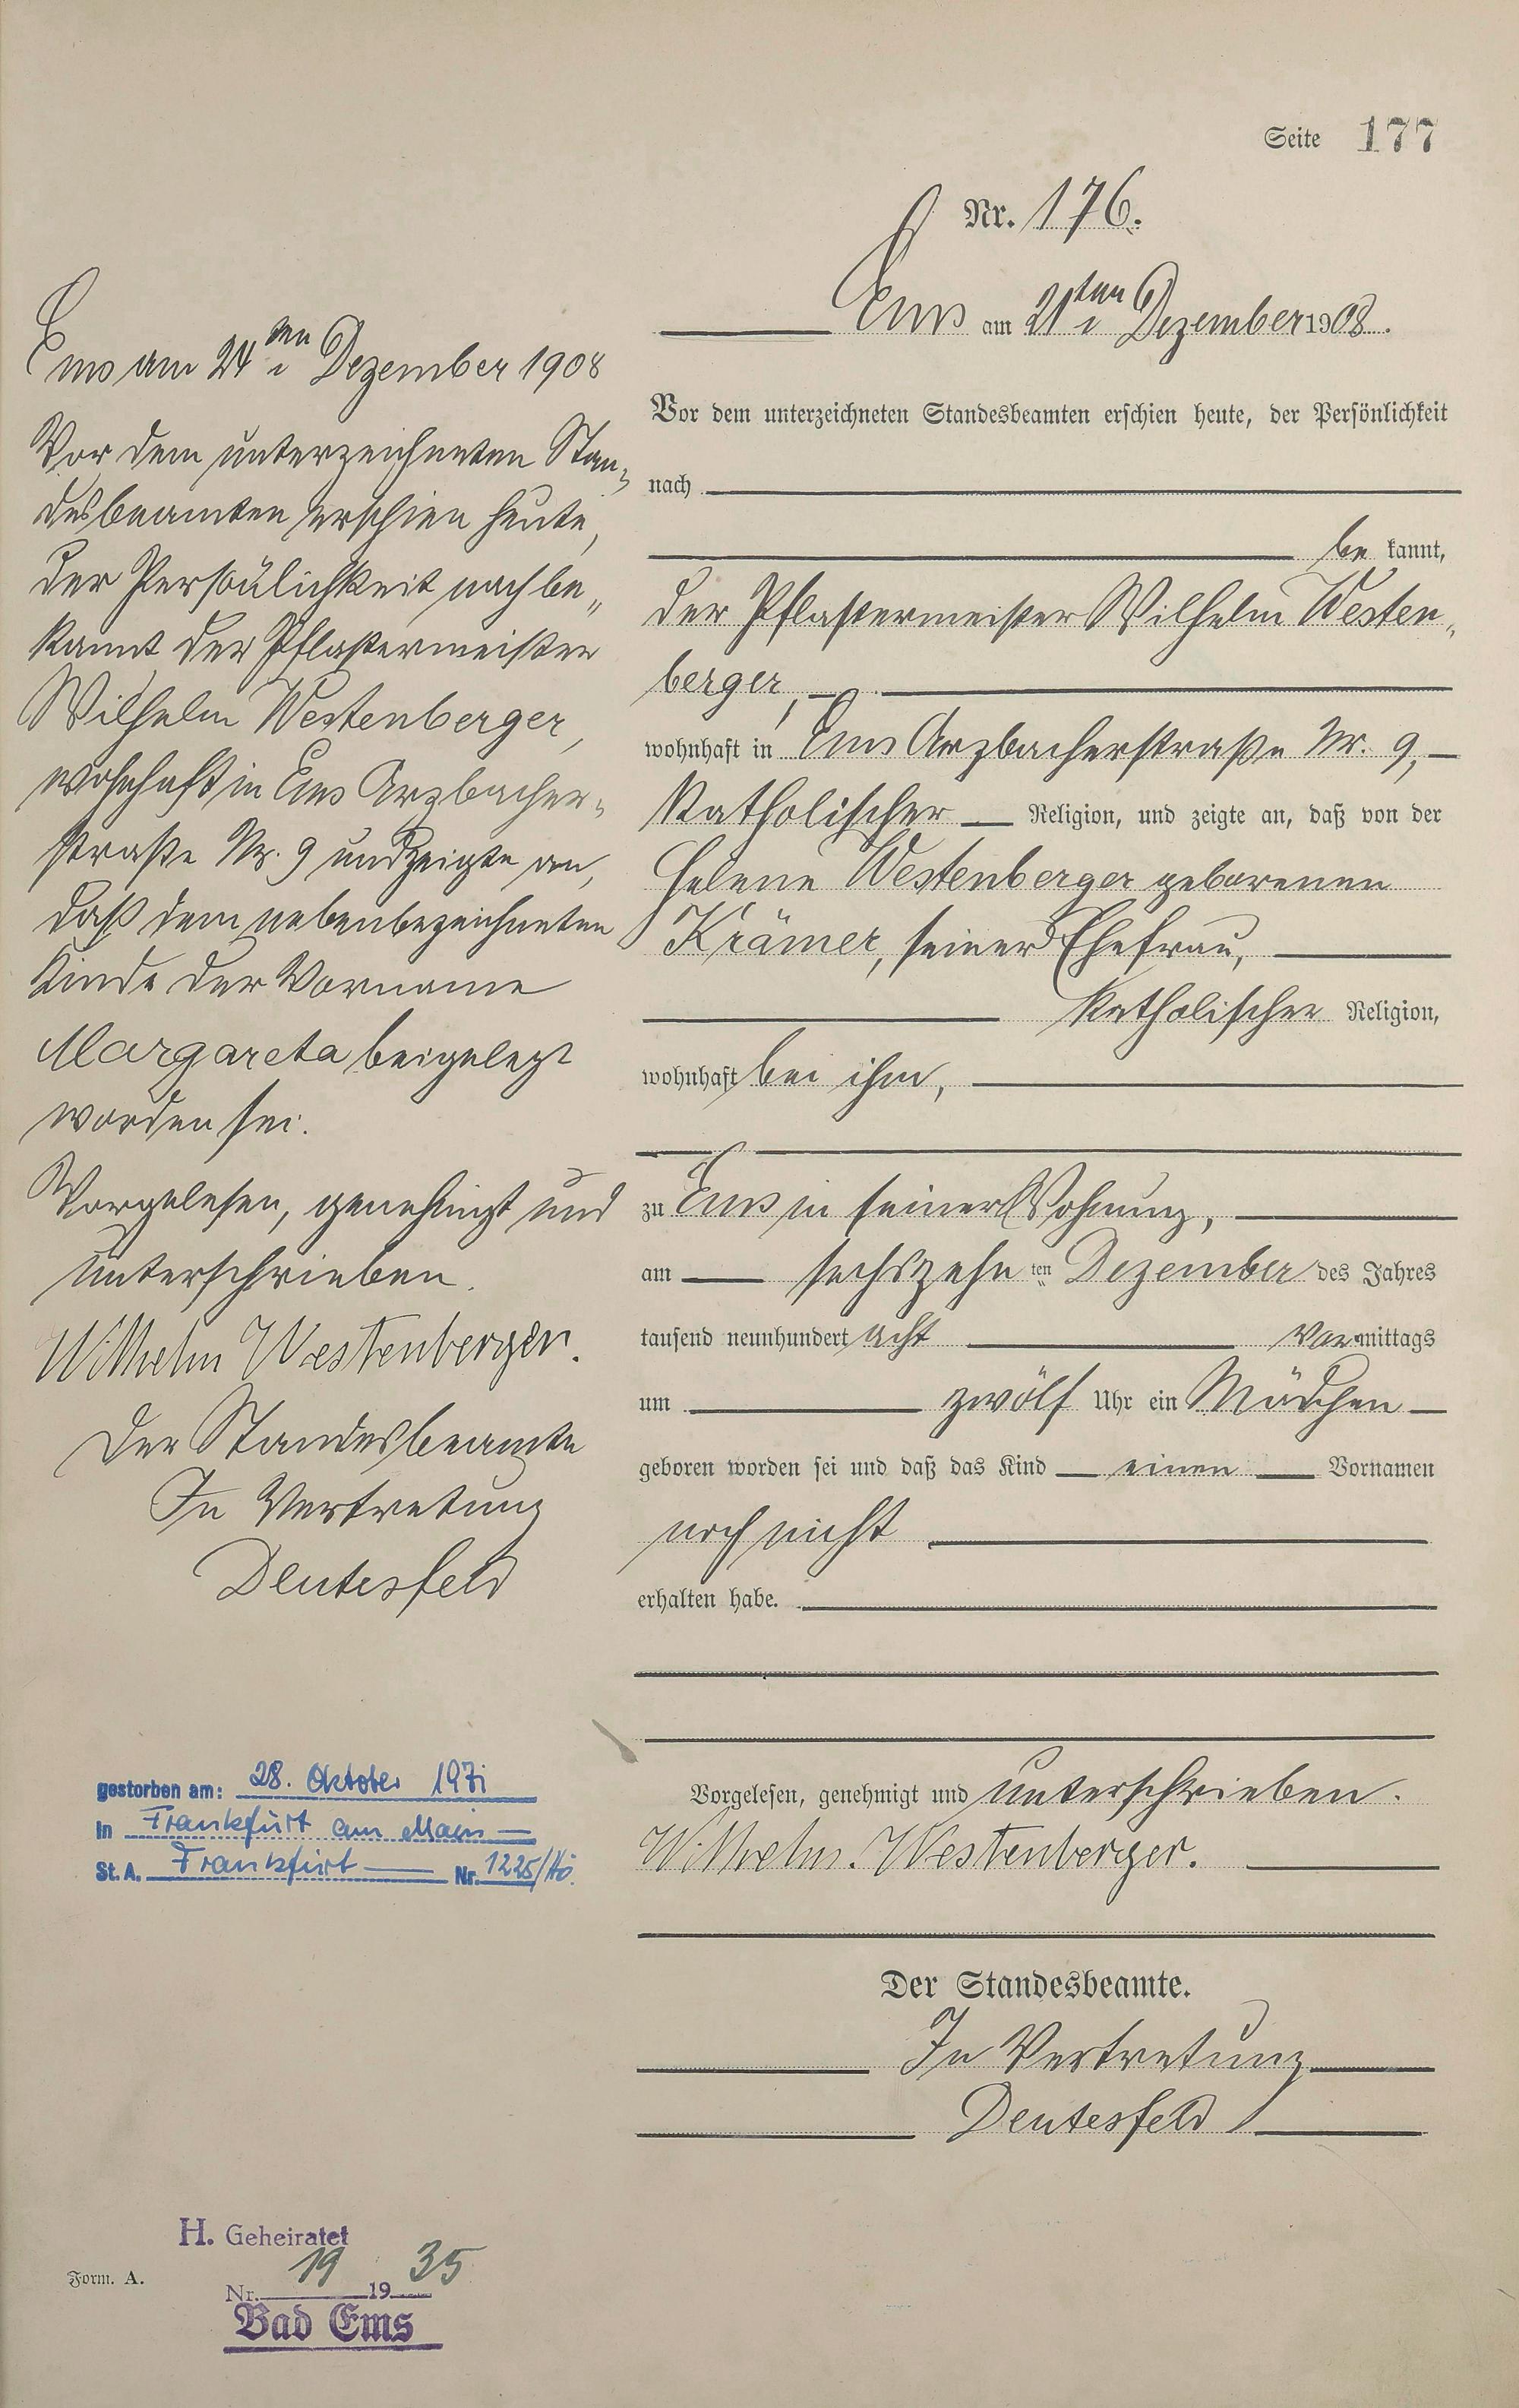 Seite 177
Nr. 176.
Ems am 21ten Dezember 1908.
Vor dem unterzeichneten Standesbeamten erschien heute, der Persönlichkeit
nach
be kannt,
der Pflastermeister Wilhelm Westen„
berger,
wohnhaft in Ems Arzbacherstraße Nr. 9,
katholischer Religion, und zeigte an, daß von der
Helene Westenberger geborenen
Krämer, seiner Ehefrau,
katholischer Religion,
wohnhaft bei ihm,
zu Ems in seiner Wohnung,
am sechszehn ten Dezember des Jahres
tausend neunhundert acht Vormittags
um zwölf Uhr ein Mädchen
geboren worden sei und daß das Kind einen Vornamen
noch nicht
erhalten habe.
Vorgelesen, genehmigt und unterschrieben.
Wilhelm. Westenberger.
Der Standesbeamte.
In Vertretung
Deutesfeld
Ems am 24ten Dezember 1908
Vor dem unterzeichneten Stan„
desbeamten erschien heute,
der Persönlichkeit nach be„
kannt der Pflastermeister
Wilhelm Westenberger,
wohnhaft in Ems Arzbacher„
straße Nr. 9 und zeigte an,
daß dem nebenbezeichneten
Kinde der Vorname
Margareta beigelegt
worden sei.
Vorgelesen, genehmigt und
unterschrieben.
Wilhelm Westenberger.
Der Standesbeamte
In Vertretung
Deutesfeld
gestorben am: 28. Oktober 1971
in Frankfurt am Main
St. A. Frankfurt Nr. 1225/Hö.
H. Geheiratet
Nr. 19 1935
Bad Ems
Form. A.